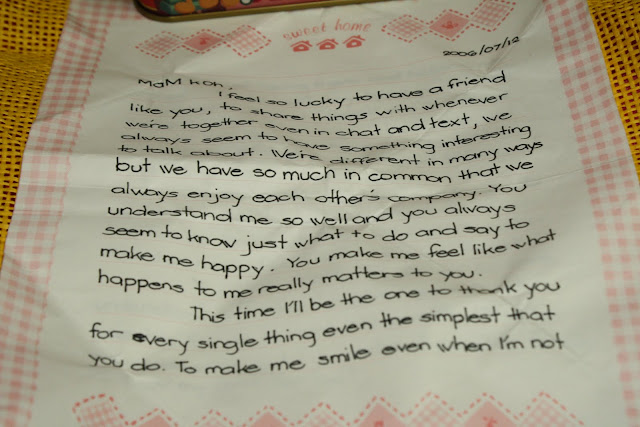 sweet home
2006/07/12
MaM Koh,
I feel so lucky to have a friend
like you, to share things with whenever
we're together even in chat and text, we
always seem to have something interesting
to talk about. We're different in many ways
but we have so much in common that we
always enjoy each other's company. You
understand me so well and you always
seem to know just what to do and say to
make me happy. You make me feel like what
happens to me really matters to you.
This time I'll be the one to thank you
for every single thing even the simplest that
you do. To make me smile even when I'm not